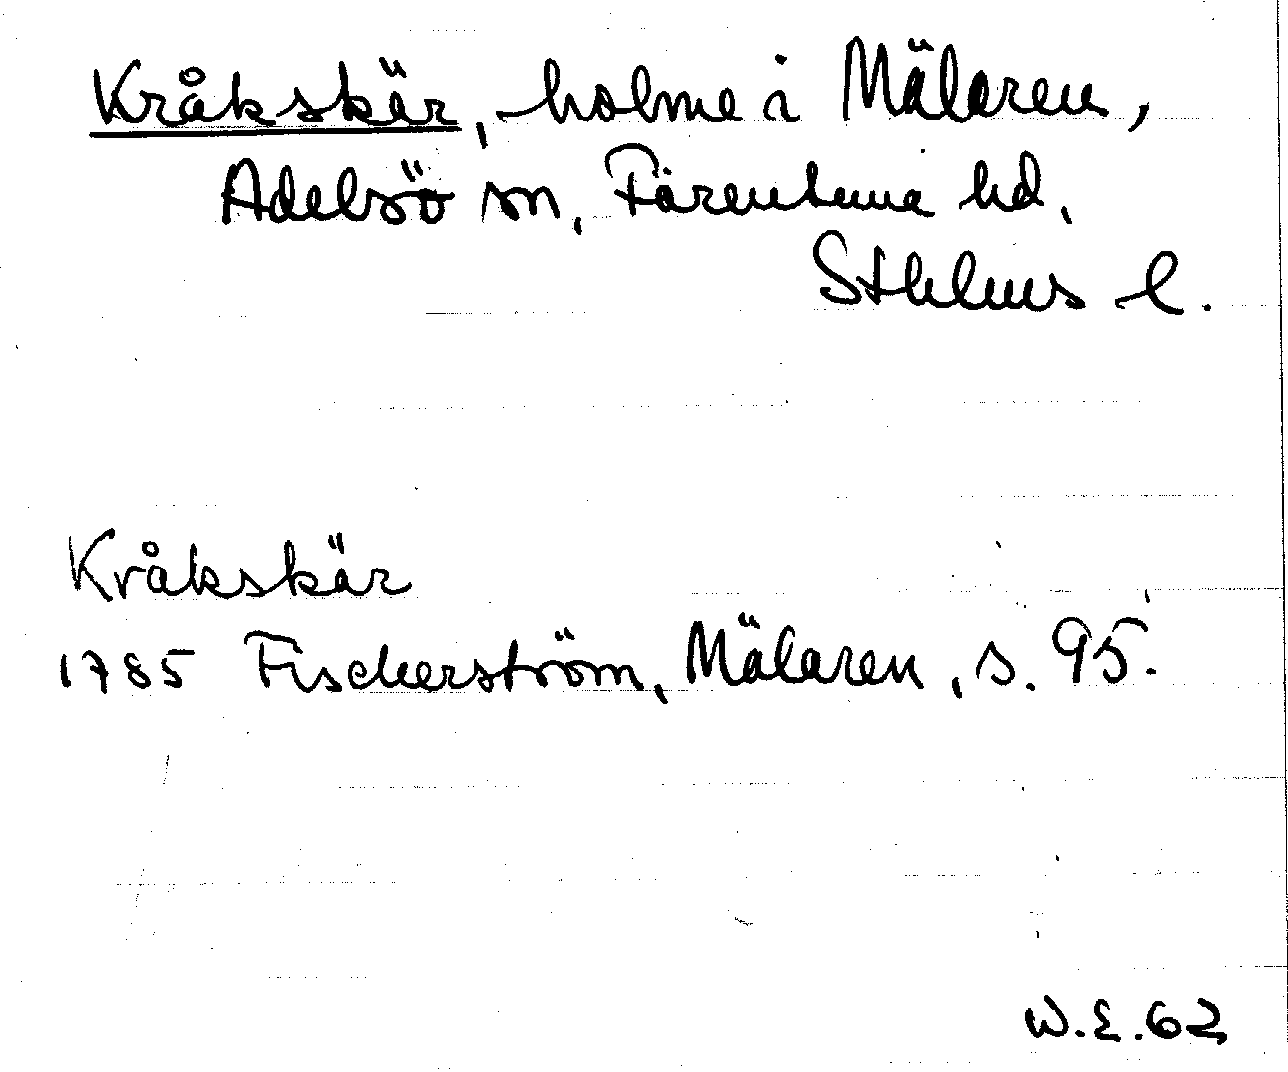 Kråkskär, holme i Mälaren,
Adelsö sn, Färentuna hd,
Sthlms l.
Kråkskär
1785 Fischerström, Mälaren, s. 95.
W.E.62